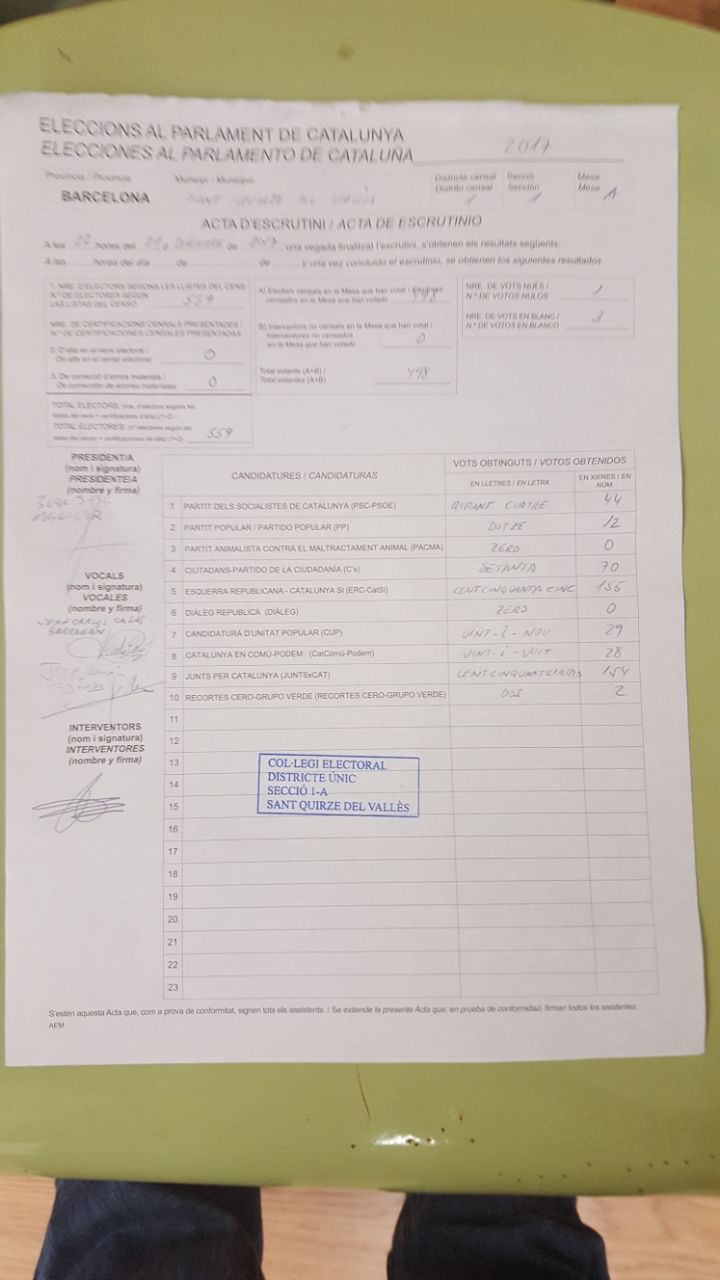 ELECCIONS AL PARLAMENT DE CATALUNYA
ELECCIONES AL PARLAMENTO DE CATALUÑA 2017
Província / Provincia Municipi / Municipio Districte censal Secció Mesa
Distrito censal Sección Mesa
BARCELONA SANT QUIRZE DEL VALLÈS 1 1 A
ACTA D'ESCRUTINI / ACTA DE ESCRUTINIO
A les 22 hores del 21 d de 2017, una vegada finalitzat l'escrutini, s'obtenen els resultats següents:
A las hores del día de de , y una vez concluido el escrutinio, se obtienen los siguientes resultados:
1. NRE. D'ELECTORS SEGONS LES LLISTES DEL CENS /
N.º DE ELECTORES SEGÚN
LAS LISTAS DEL CENSO 559
NRE. DE CERTIFICACIONS CENSALS PRESENTADES /
N.º DE CERTIFICACIONES CENSALES PRESENTADAS
2. D'alta en el cens electoral /
De alta en el censo electoral: 0
3. De correcció d'errors materials /
De corrección de errores materiales: 0
TOTAL ELECTORS:
TOTAL ELECTORES: 559
A) Electors censats en la Mesa que han votat / Electores
censados en la Mesa que han votado 498
B) Interventors no censats en la Mesa que han votat /
Interventores no censados
en la Mesa que han votado 0
Total votants (A+B) /
Total votantes (A+B) 498
NRE. DE VOTS NULS /
N.º DE VOTOS NULOS 1
NRE. DE VOTS EN BLANC /
N.º DE VOTOS EN BLANCO 3
PRESIDENT/A
(nom i signatura)
PRESIDENTE/A
(nombre y firma)
VOCALS
(nom i signatura)
VOCALES
(nombre y firma)
JUAN CARLOS
INTERVENTORS
(nom i signatura)
INTERVENTORES
(nombre y firma)
CANDIDATURES / CANDIDATURAS VOTS OBTINGUTS / VOTOS OBTENIDOS
EN LLETRES / EN LETRA EN XIFRES / EN NÚM.
1 PARTIT DELS SOCIALISTES DE CATALUNYA (PSC-PSOE) QURANT CUATRE 44
2 PARTIT POPULAR / PARTIDO POPULAR (PP) DOTZE 12
3 PARTIT ANIMALISTA CONTRA EL MALTRACTAMENT ANIMAL (PACMA) ZERO 0
4 CIUTADANS-PARTIDO DE LA CIUDADANÍA (C's) SETANTA 70
5 ESQUERRA REPUBLICANA - CATALUNYA SÍ (ERC-CatSí) CENT CINQUANTA CINC 155
6 DIÀLEG REPUBLICÀ (DIÀLEG) ZERO 0
7 CANDIDATURA D'UNITAT POPULAR (CUP) VINT-i-NOU 29
8 CATALUNYA EN COMÚ-PODEM (CatComú-Podem) VINT-i-VUIT 28
9 JUNTS PER CATALUNYA (JUNTSxCAT) 154
10 RECORTES CERO-GRUPO VERDE (RECORTES CERO-GRUPO VERDE) DOS 2
11
12
13
14
15
16
17
18
19
20
21
22
23
COL·LEGI ELECTORAL
DISTRICTE ÚNIC
SECCIÓ 1-A
SANT QUIRZE DEL VALLÈS
S'estén aquesta Acta que, com a prova de conformitat, signen tots els assistents. / Se extiende la presente Acta que, en prueba de conformidad, firman todos los asistentes.
AEM